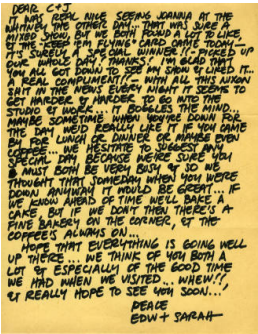 DEAR C+J
IT WAS REAL NICE SEEING JOANNA AT THE
WHITNEY THE OTHER DAY... THAT WAS SURE A
MIXED SHOW, BUT WE BOTH FOUND A LOT TO LIKE
& THE "KEEP 'EM FLYING" CARD CAME TODAY,
IT'S SURELY A SPECIAL WINNER!! - PICKED UP
OUR WHOLE DAY! THANKS! I'M GLAD THAT
YOU ALL GOT DOWN TO SEE MY SHOW & LIKED IT...
A REAL COMPLIMENT!! - WITH ALL THIS NIXON
SHIT IN THE NEWS EVERY NIGHT IT SEEMS TO
GET HARDER & HARDER TO GO INTO THE
STUDIO & WORK... IT BOGGLES THE MIND...
MAYBE SOMETIME WHEN YOU'RE DOWN FOR
THE DAY WE'D REALLY LIKE IT IF YOU CAME
BY FOR LUNCH OR DINNER OR MAYBE EVEN
COFFEE... WE HESITATE TO SUGGEST ANY
SPECIAL DAY BECAUSE WE'RE SURE YOU
MUST BOTH BE VERY BUSY, & SO WE
THOUGHT THAT SOMEDAY WHEN YOU WERE
DOWN ANYWAY IT WOULD BE GREAT... IF
WE KNOW AHEAD OF TIME WE'LL BAKE A
CAKE, BUT IF WE DON'T THEN THERE'S A
FINE BAKERY ON THE CORNER, & THE
COFFEE'S ALWAYS ON...
HOPE THAT EVERYTHING IS GOING WELL
UP THERE... WE THINK OF YOU BOTH A
LOT & ESPECIALLY OF THE GOOD TIME
WE HAD WHEN WE VISITED... WHEW!!
& REALLY HOPE TO SEE YOU SOON...!
PEACE
EDW + SARAH